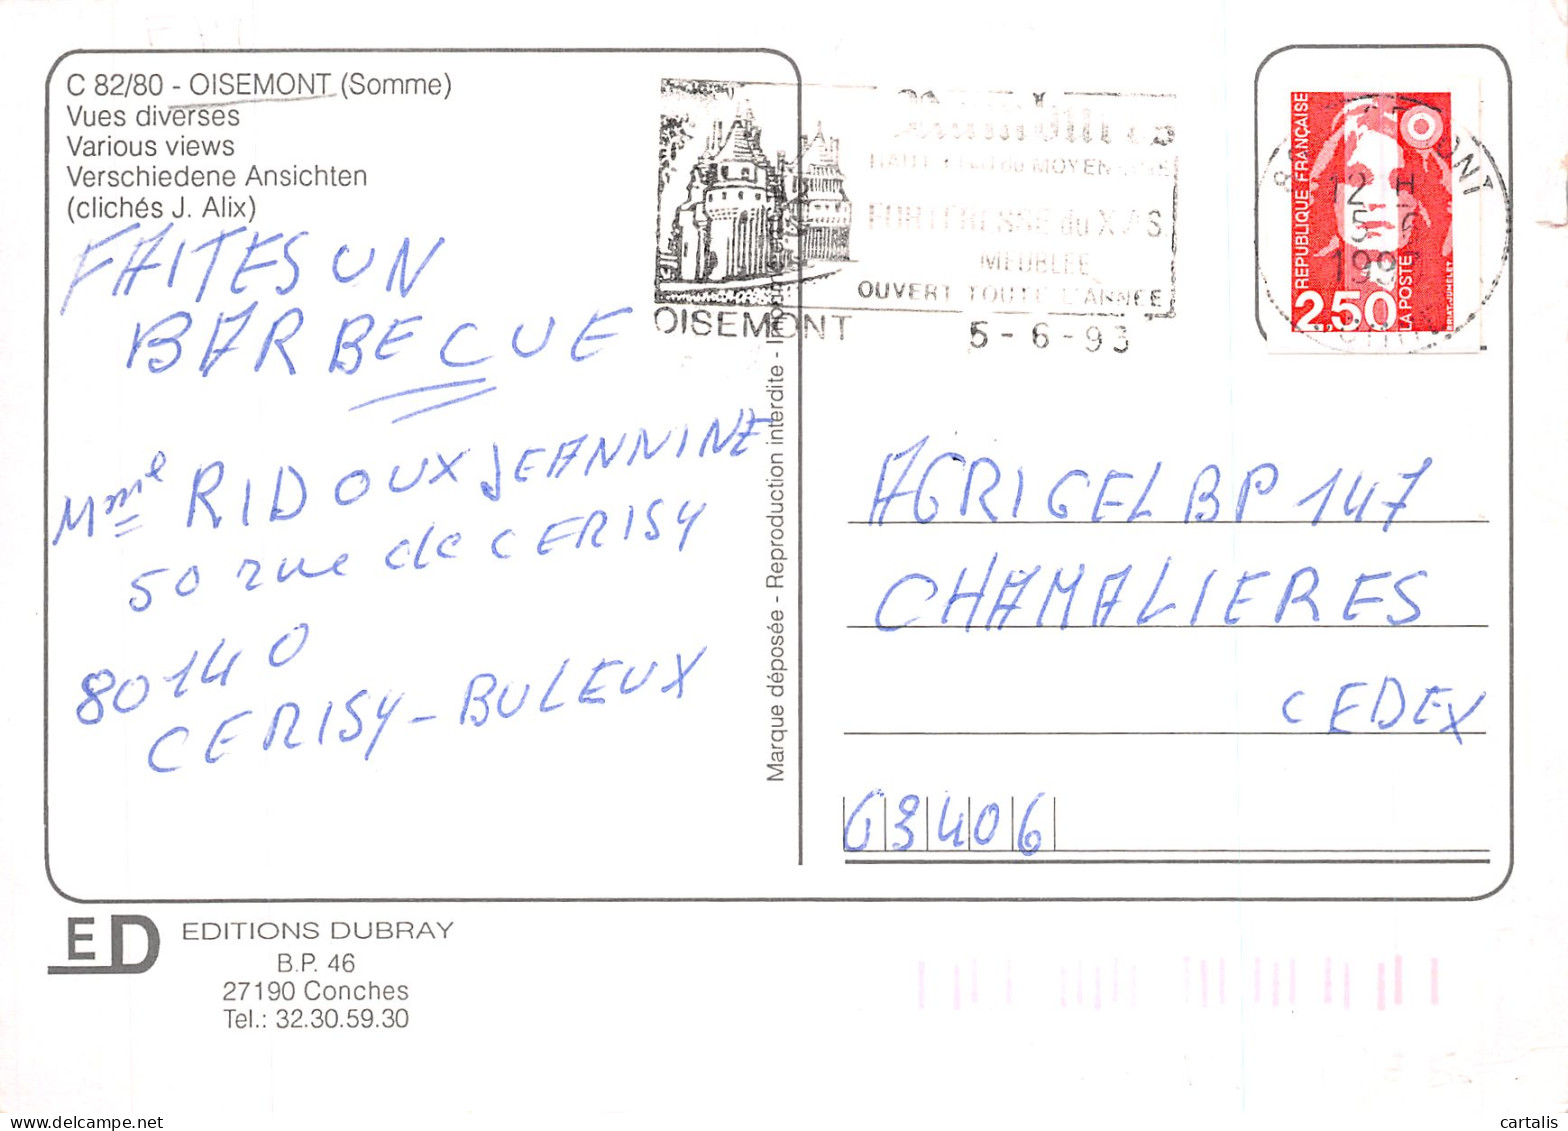 C 82/80 - OISEMONT (Somme)
Vues diverses
Various views
Verschiedene Ansichten
(clichés J. Alix)
FAITES UN
BARBECUE
Mme RIDOUX JEANNINE
50 rue de CERISY
80140
CERISY-BULEUX
Marque déposée - Reproduction interdite -
HAUT du MOYEN-AGE
FORTERESSE du
MEUBLEE
OUVERT TOUTE L'ANNEE
OISEMONT 5-6-93
REPUBLIQUE FRANÇAISE
2,50
LA POSTE
12 H
AGRIGEL BP 147
CHAMALIERES
CEDEX
63406
ED
EDITIONS DUBRAY
B.P. 46
27190 Conches
Tel.: 32.30.59.30
cartalis